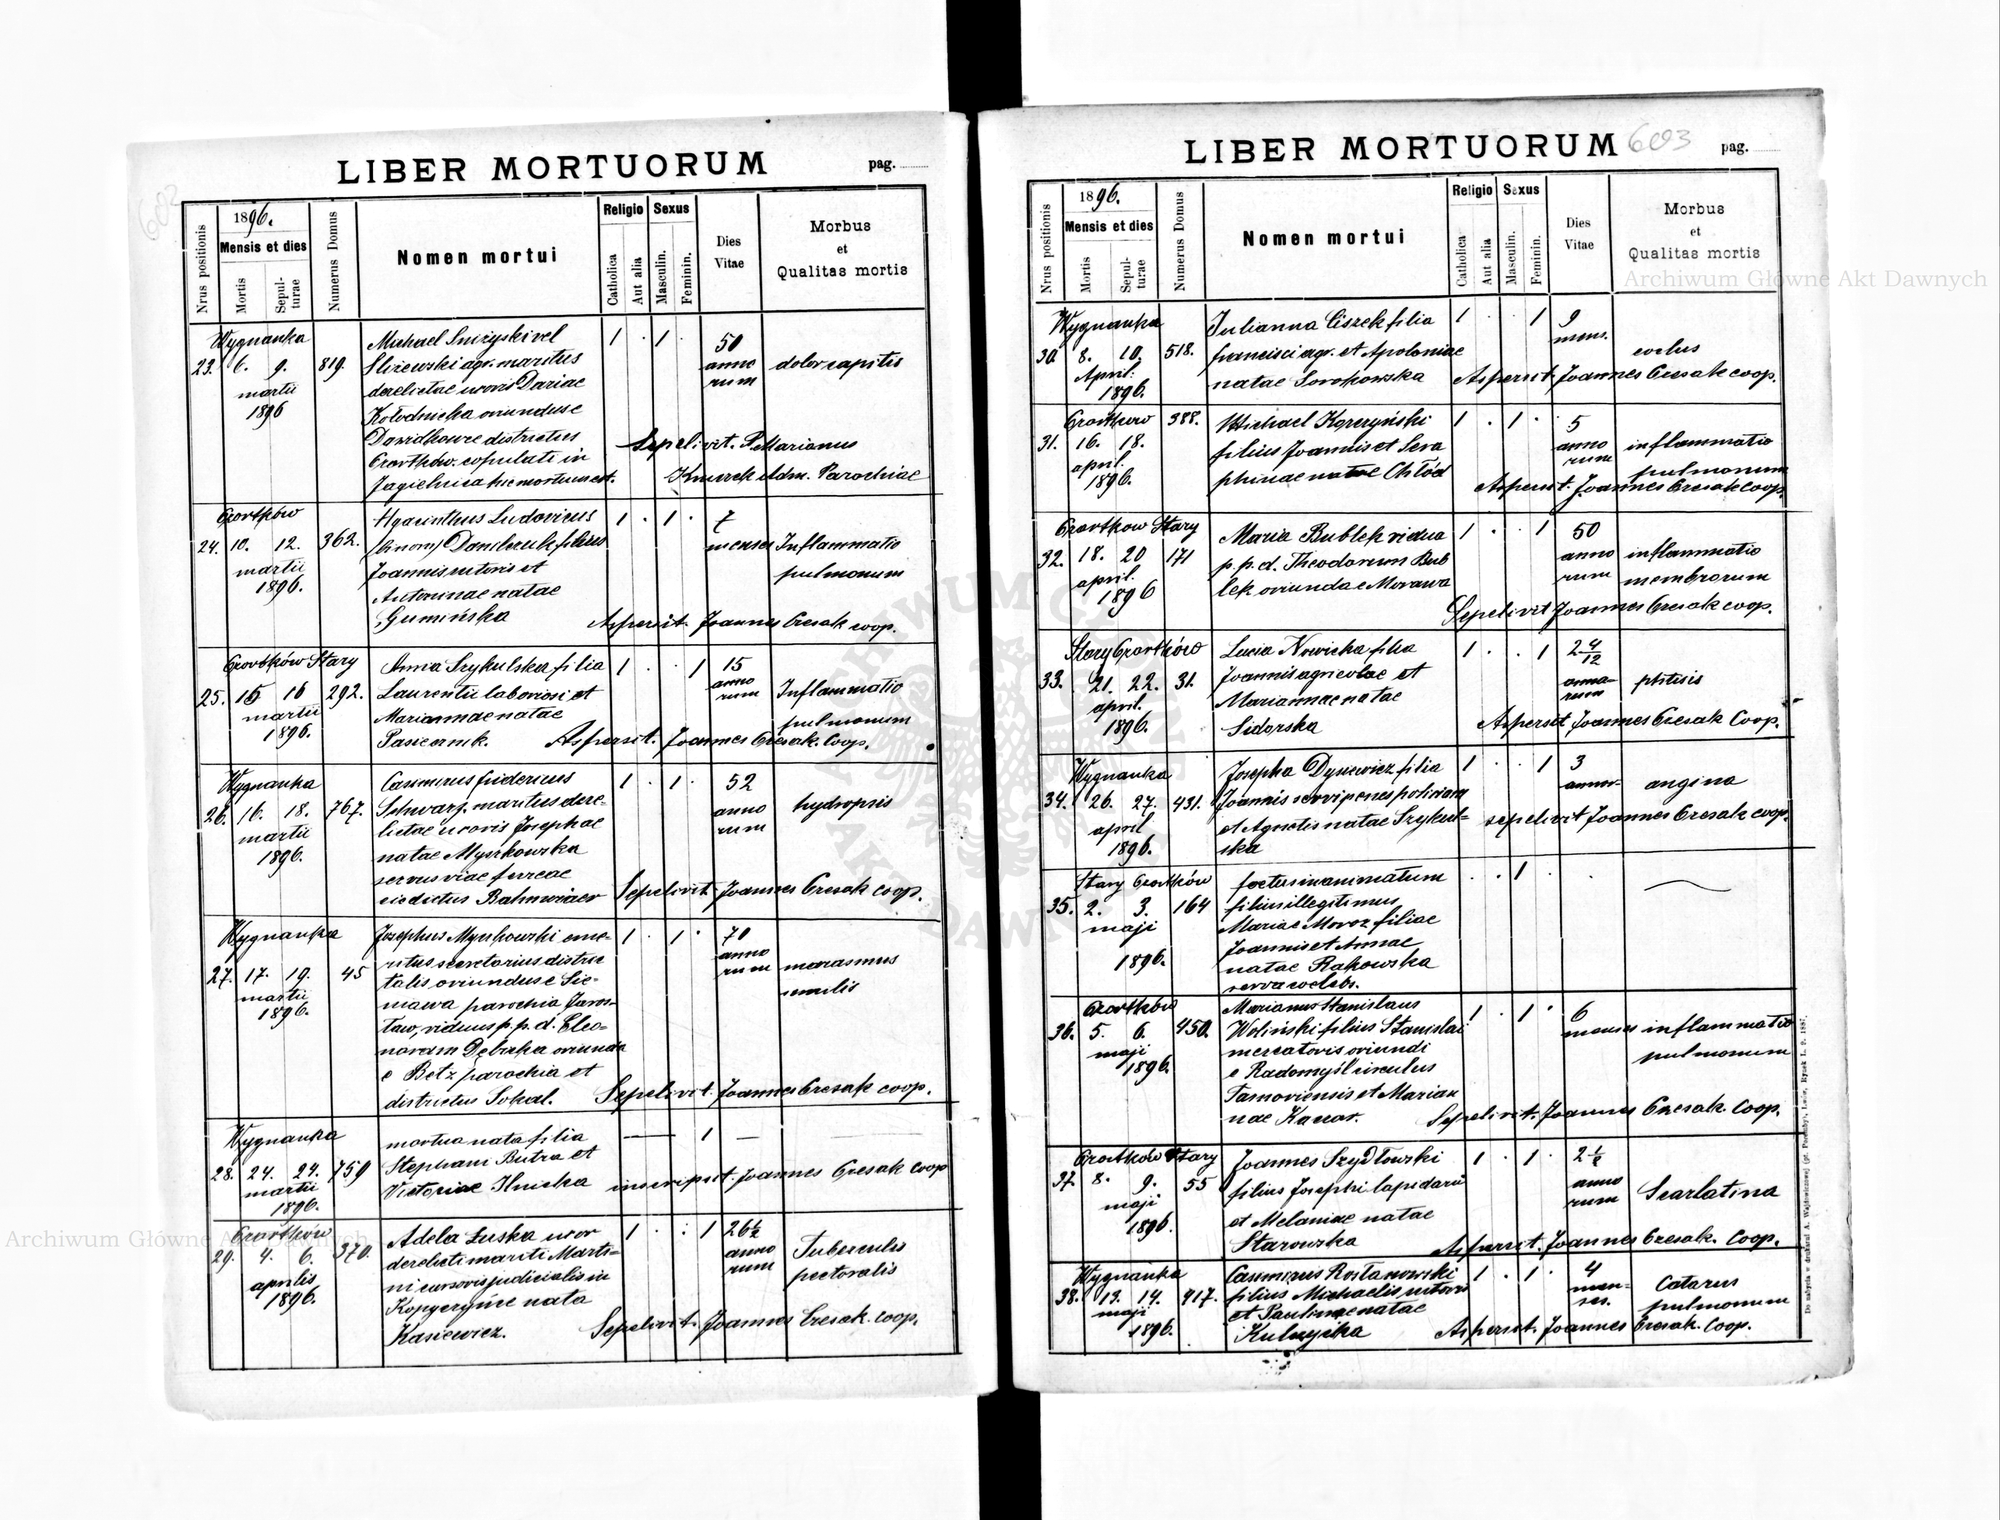 LIBER MORTUORUM
pag.
602
1896.
Nrus positionis
Mensis et dies
Mortis
Sepulturae
Numerus Domus
Nomen mortui
Religio
Catholica
Aut alia
Sexus
Masculin.
Feminin.
Dies
Vitae
Morbus
et
Qualitas mortis
Wygnanka
23. 6. 9. martii 1896 819.
Michael
agr. maritus
derelictae uxoris Dariae
Kołodnicka oriundus e
districtus
Czortków. copulati in
Jagielnica hic mortuus est.
1 . 1 .
50
anno
rum
dolor capitis
Sepelivit. P. Marianus
Adm. Parochiae
Czortków
24. 10. 12. martii 1896. 362.
Hyacinthus Ludovicus
(binom) Danilczuk filius
Joannis sutoris et
Antoninae natae
Gumińska
1 . 1 .
7
menses
Inflammatio
pulmonum
Aspersit. Joannes Cresak coop.
Czortków Stary
25. 15 16 martii 1896. 292.
Anna Szykulska filia
Laurentii laboriosi et
Mariannae natae
Pasiecznik.
1 . . 1
15
anno
rum
Inflammatio
pulmonum
Aspersit. Joannes Cresak. Coop.
Wygnanka
26. 16. 18. martii 1896. 767.
Casimirus Fridericus
Schwarz. maritus dere-
lictae uxoris Josephae
natae Myszkowska
servus viae ferreae
1 . 1 .
52
anno
rum
hydropsis
Sepelivit Joannes Cresak coop.
Wygnanka
27. 17. 19. martii 1896. 45
Josephus Myszkowski eme-
ritus secretarius distric
talis, oriundus e Sie-
niawa parochia Jaros-
ław, viduus p. p. d. Eleo-
noram Dębicka oriunda
e Bełz parochia et
districtus Sokal.
1 . 1 .
70
anno
rum
marasmus
senilis
Sepelivit. Joannes Cresak coop.
Wygnanka
28. 24. 24. martii 1896. 759
mortua nata filia
Stephani Butra et
Victoriae Ilnicka
— 1 —
inscripsit. Joannes Cresak coop
Czortków
29. 4. 6. aprilis 1896. 370.
Adela Łuska uxor
derelicti mariti Marti-
ni cursoris judicialis in
Kopyczyńce nata
Kasiewicz.
1 . . 1
26½
anno
rum
Tuberculis
pectoralis
Sepelivit. Joannes Cresak. coop.
LIBER MORTUORUM
603
pag.
1896.
Nrus positionis
Mensis et dies
Mortis
Sepulturae
Numerus Domus
Nomen mortui
Religio
Catholica
Aut alia
Sexus
Masculin.
Feminin.
Dies
Vitae
Morbus
et
Qualitas mortis
Wygnanka
30. 8. 10. April. 1896. 518.
Julianna Ciszek filia
Francisci agr. et Apoloniae
natae Sorokowska
1 . 1
9
mens.
Aspersit Joannes Cresak coop.
Czortków
31. 16. 18. april. 1896. 388.
Michael Kopczyński
filius Joannis et Sera
phinae natae Chłód
1 . 1 .
5
anno
rum
inflammatio
pulmonum
Aspersit. Joannes Cresak coop.
Czortkow Stary
32. 18. 20 april. 1896 171
Maria Bublek vidua
p. p. d. Theodorum Bub
lek oriunda e Morawa
1 . . 1
50
anno
rum
inflammatio
membrorum
Sepelivit Joannes Cresak coop.
Stary Czortków
33. 21. 22. april. 1896. 31.
Lucia Nowicka filia
Joannis agricolae et
Mariannae natae
Sidorska
1 . . 1
2 4/12
anno-
rum
phtisis
Aspersit Joannes Cresak Coop.
Wygnanka
34. 26. 27. april 1896. 431.
Josepha Dysiewicz filia
et Agnetis natae Szykul-
ska
1 . . 1
3
annor.
angina
sepelivit Joannes Cresak coop.
Stary Czortków
35. 2. 3. maji 1896. 164
foetus inanimatum
filius illegitimus
Mariae Moroz filiae
Joannis et Annae
natae Rakowska
. . 1 .
Czortków
36. 5. 6. maji 1896. 450.
Marianus Stanislaus
Woliński filius Stanislai
mercatoris oriundi
e Radomyśl circulus
Tarnoviensis et Marian
nae Kaczor.
1 . 1 .
6
menses
inflammatio
pulmonum
Sepelivit. Joannes Cresak. Coop.
Czortków Stary
37. 8. 9. maji 1896. 55
Joannes Szydłowski
filius Josephi lapidarii
et Melaniae natae
Starowska
1 . 1 .
2½
anno
rum
Scarlatina
Aspersit. Joannes Cresak. Coop.
Wygnanka
38. 13. 14. maji 1896. 417.
Casimirus Rostanowski
filius Michaelis sutoris
et Paulinae natae
Kulczycka
1 . 1 .
4
men-
ses.
Catarus
pulmonum
Aspersit. Joannes Cresak. Coop.
Archiwum Główne Akt Dawnych
Archiwum Główne Akt Dawnych